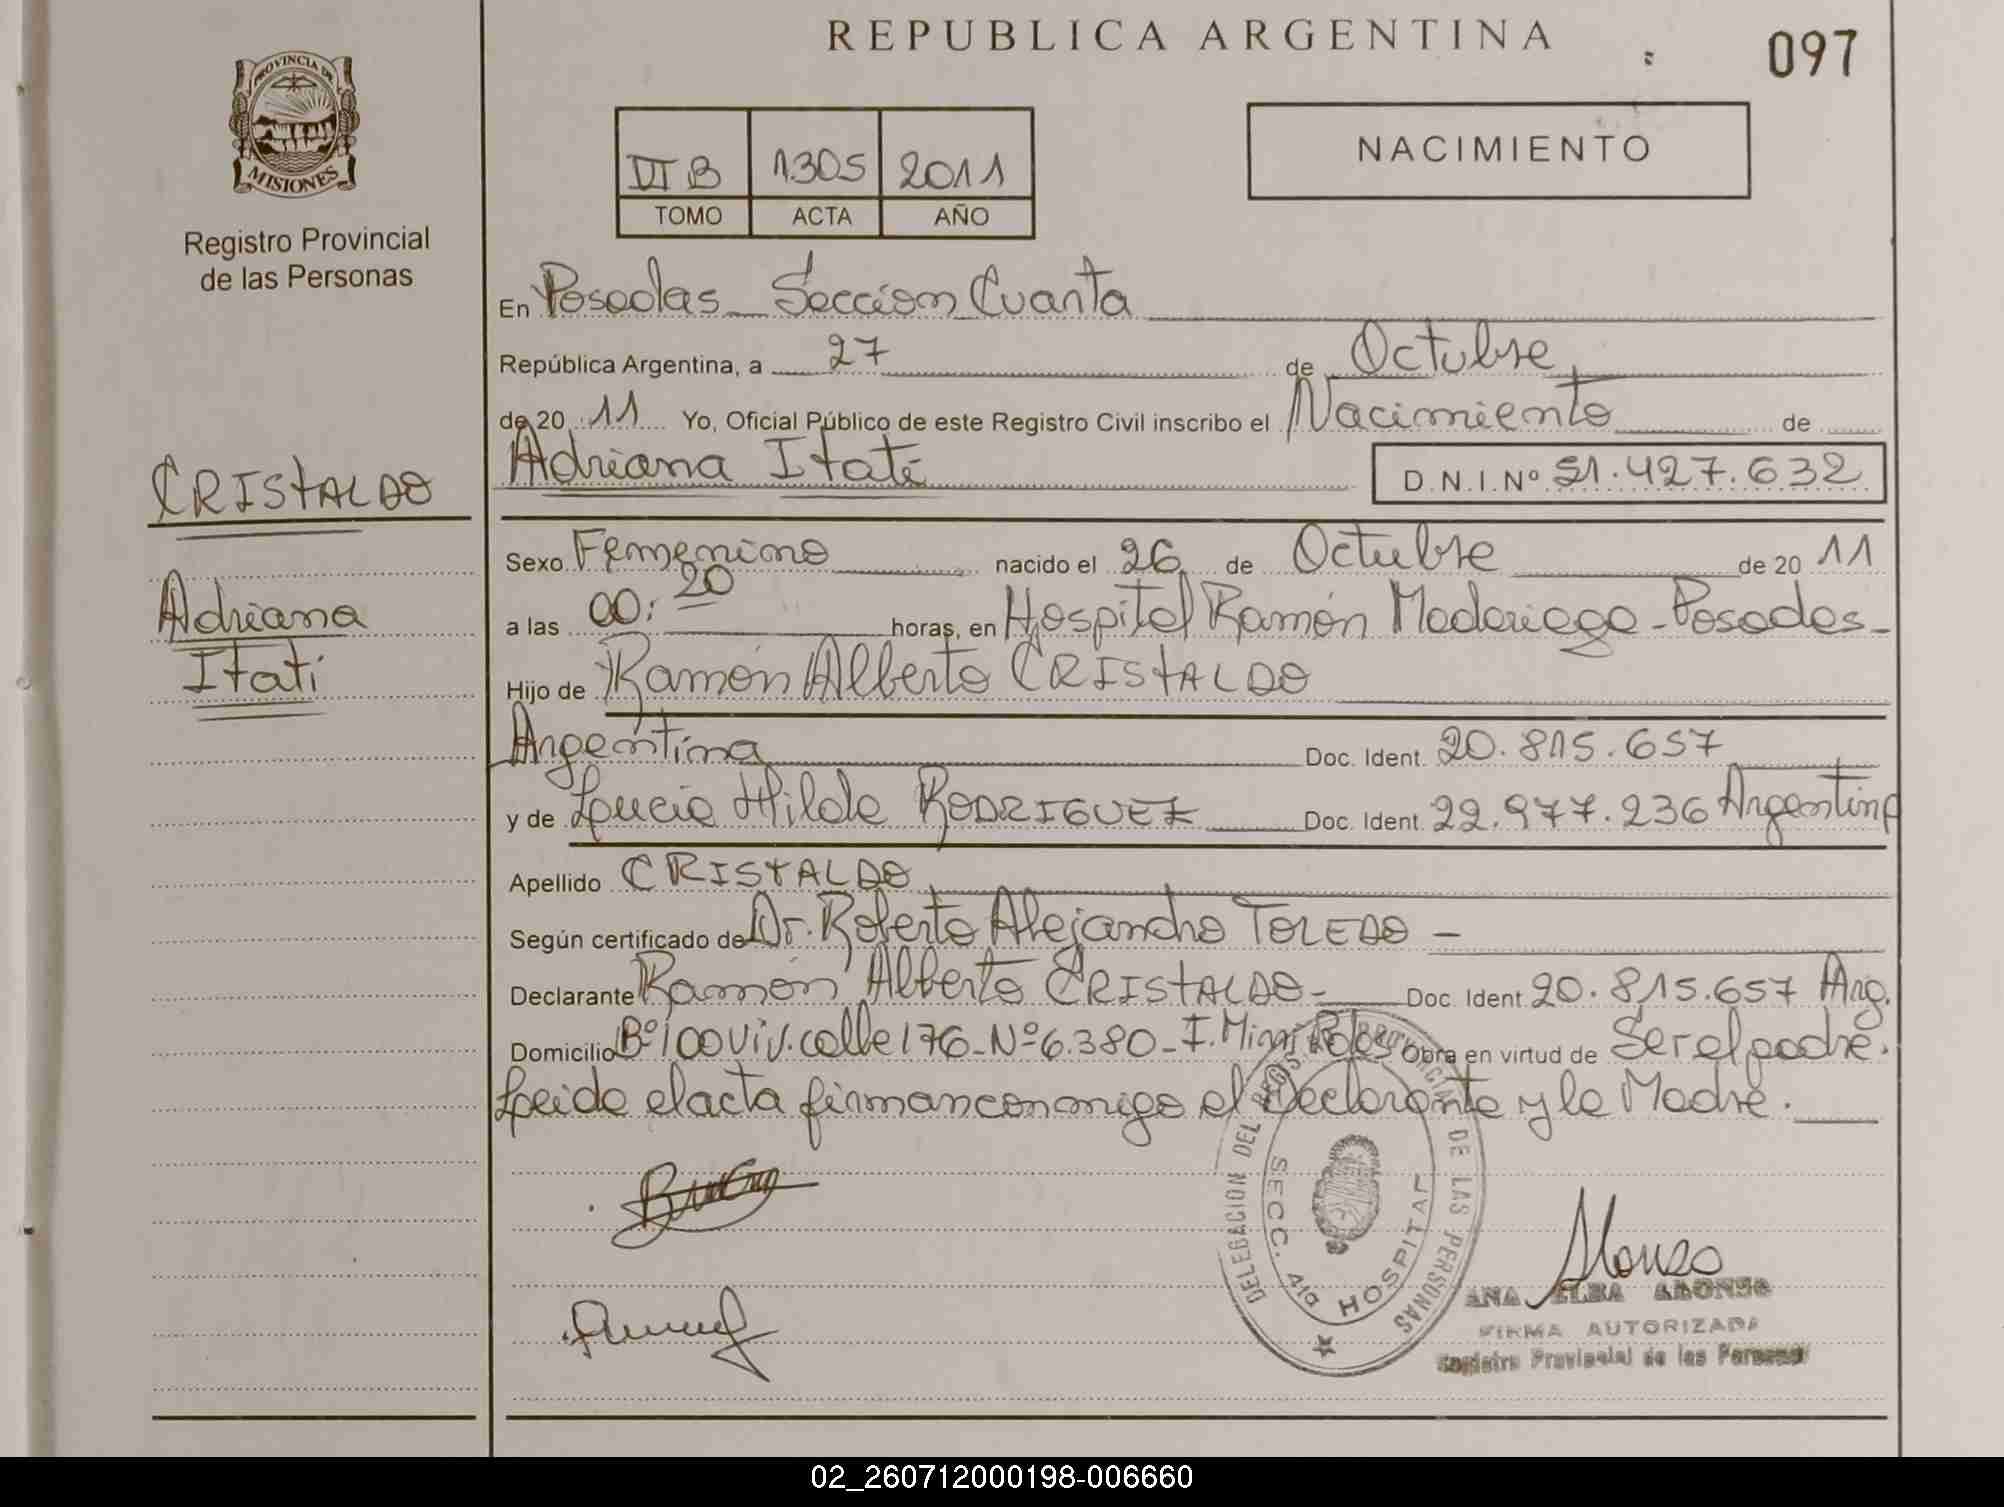 REPUBLICA ARGENTINA
097
PROVINCIA DE
MISIONES
Registro Provincial
de las Personas
VI B 1305 2011
TOMO ACTA AÑO
NACIMIENTO
En Posadas Sección Cuarta
República Argentina, a 27 de Octubre
de 20 11 Yo, Oficial Público de este Registro Civil inscribo el Nacimiento de
Adriana Itatí
D.N.I. Nº 51.427.632
CRISTALDO
Adriana
Itatí
Sexo Femenino nacido el 26 de Octubre de 20 11
a las 00:20 horas, en Hospital Ramón Madariaga - Posadas -
Hijo de Ramón Alberto CRISTALDO
Argentina Doc. Ident. 20.815.657
y de Lucia Hilda RODRIGUEZ Doc. Ident. 22.977.236 Argentina
Apellido CRISTALDO
Según certificado de Dr. Roberto Alejandro TOLEDO -
Declarante Ramón Alberto CRISTALDO - Doc. Ident. 20.815.657 Arg.
Domicilio Bº 100 Viv. calle 176 - Nº 6.380 - I. Mini Pdas Obra en virtud de Ser el padre.
Leida el acta firman conmigo el Declarante y la Madre.
DELEGACION DEL REGIS. PROVINCIAL DE LAS PERSONAS
SECC. 4ta HOSPITAL
Alonso
ANA ELBA ALONSO
FIRMA AUTORIZADA
Registro Provincial de las Personas
02_260712000198-006660